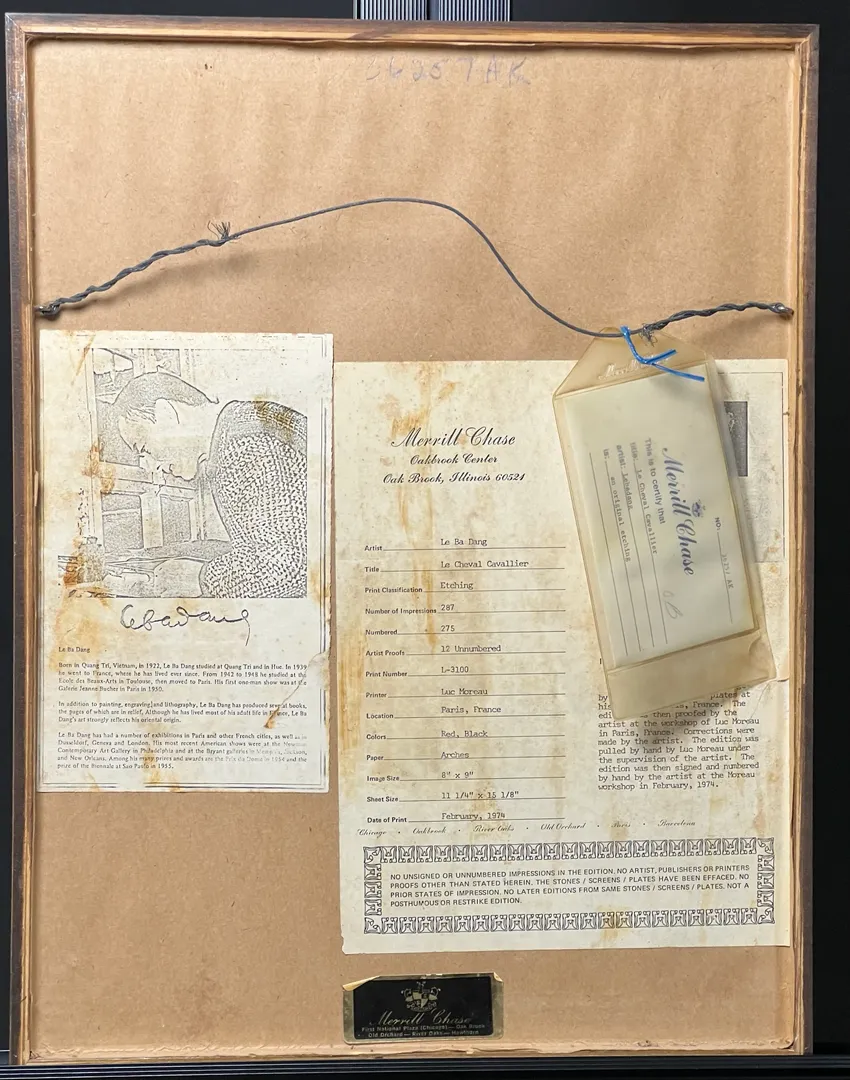 Lebadang
Le Ba Dang
Born in Quang Tri, Vietnam, in 1922, Le Ba Dang studied at Quang Tri and in Hue. In 1939
he went to France, where he has lived ever since. From 1942 to 1948 he studied at the
Ecole des Beaux-Arts in Toulouse, then moved to Paris. His first one-man show was at the
Galerie Jeanne Bucher in Paris in 1950.
In addition to painting, engraving and lithography, Le Ba Dang has produced several books,
the pages of which are in relief. Although he has lived most of his adult life in France, Le Ba
Dang's art strongly reflects his oriental origin.
Le Ba Dang has had a number of exhibitions in Paris and other French cities, as well as in
Dusseldorf, Geneva and London. His most recent American shows were at the Newman
Contemporary Art Gallery in Philadelphia and at the Bryant galleries in Memphis, Jackson,
and New Orleans. Among his many prizes and awards are the Prix du Dome in 1954 and the
prize of the Biennale at Sao Paulo in 1955.
Merrill Chase
Oakbrook Center
Oak Brook, Illinois 60521
Artist Le Ba Dang
Title Le Cheval Cavallier
Print Classification Etching
Number of Impressions 287
Numbered 275
Artist Proofs 12 Unnumbered
Print Number L-3100
Printer Luc Moreau
Location Paris, France
Colors Red, Black
Paper Arches
Image Size 8" x 9"
Sheet Size 11 1/4" x 15 1/8"
Date of Print February, 1974
by plates at
his France. The
then proofed by the
artist at the workshop of Luc Moreau
in Paris, France. Corrections were
made by the artist. The edition was
pulled by hand by Luc Moreau under
the supervision of the artist. The
edition was then signed and numbered
by hand by the artist at the Moreau
workshop in February, 1974.
Chicago · Oakbrook · River Oaks · Old Orchard · Paris · Barcelona
NO UNSIGNED OR UNNUMBERED IMPRESSIONS IN THE EDITION. NO ARTIST, PUBLISHERS OR PRINTERS
PROOFS OTHER THAN STATED HEREIN. THE STONES / SCREENS / PLATES HAVE BEEN EFFACED. NO
PRIOR STATES OF IMPRESSION. NO LATER EDITIONS FROM SAME STONES / SCREENS / PLATES. NOT A
POSTHUMOUS OR RESTRIKE EDITION.
NO:
Merrill Chase
This is to certify that
title: Le Cheval Cavallier
artist: Lebadang
is: an original etching
Merrill Chase
First National Plaza (Chicago) — Oak Brook
Old Orchard — River Oaks — Hawthorn